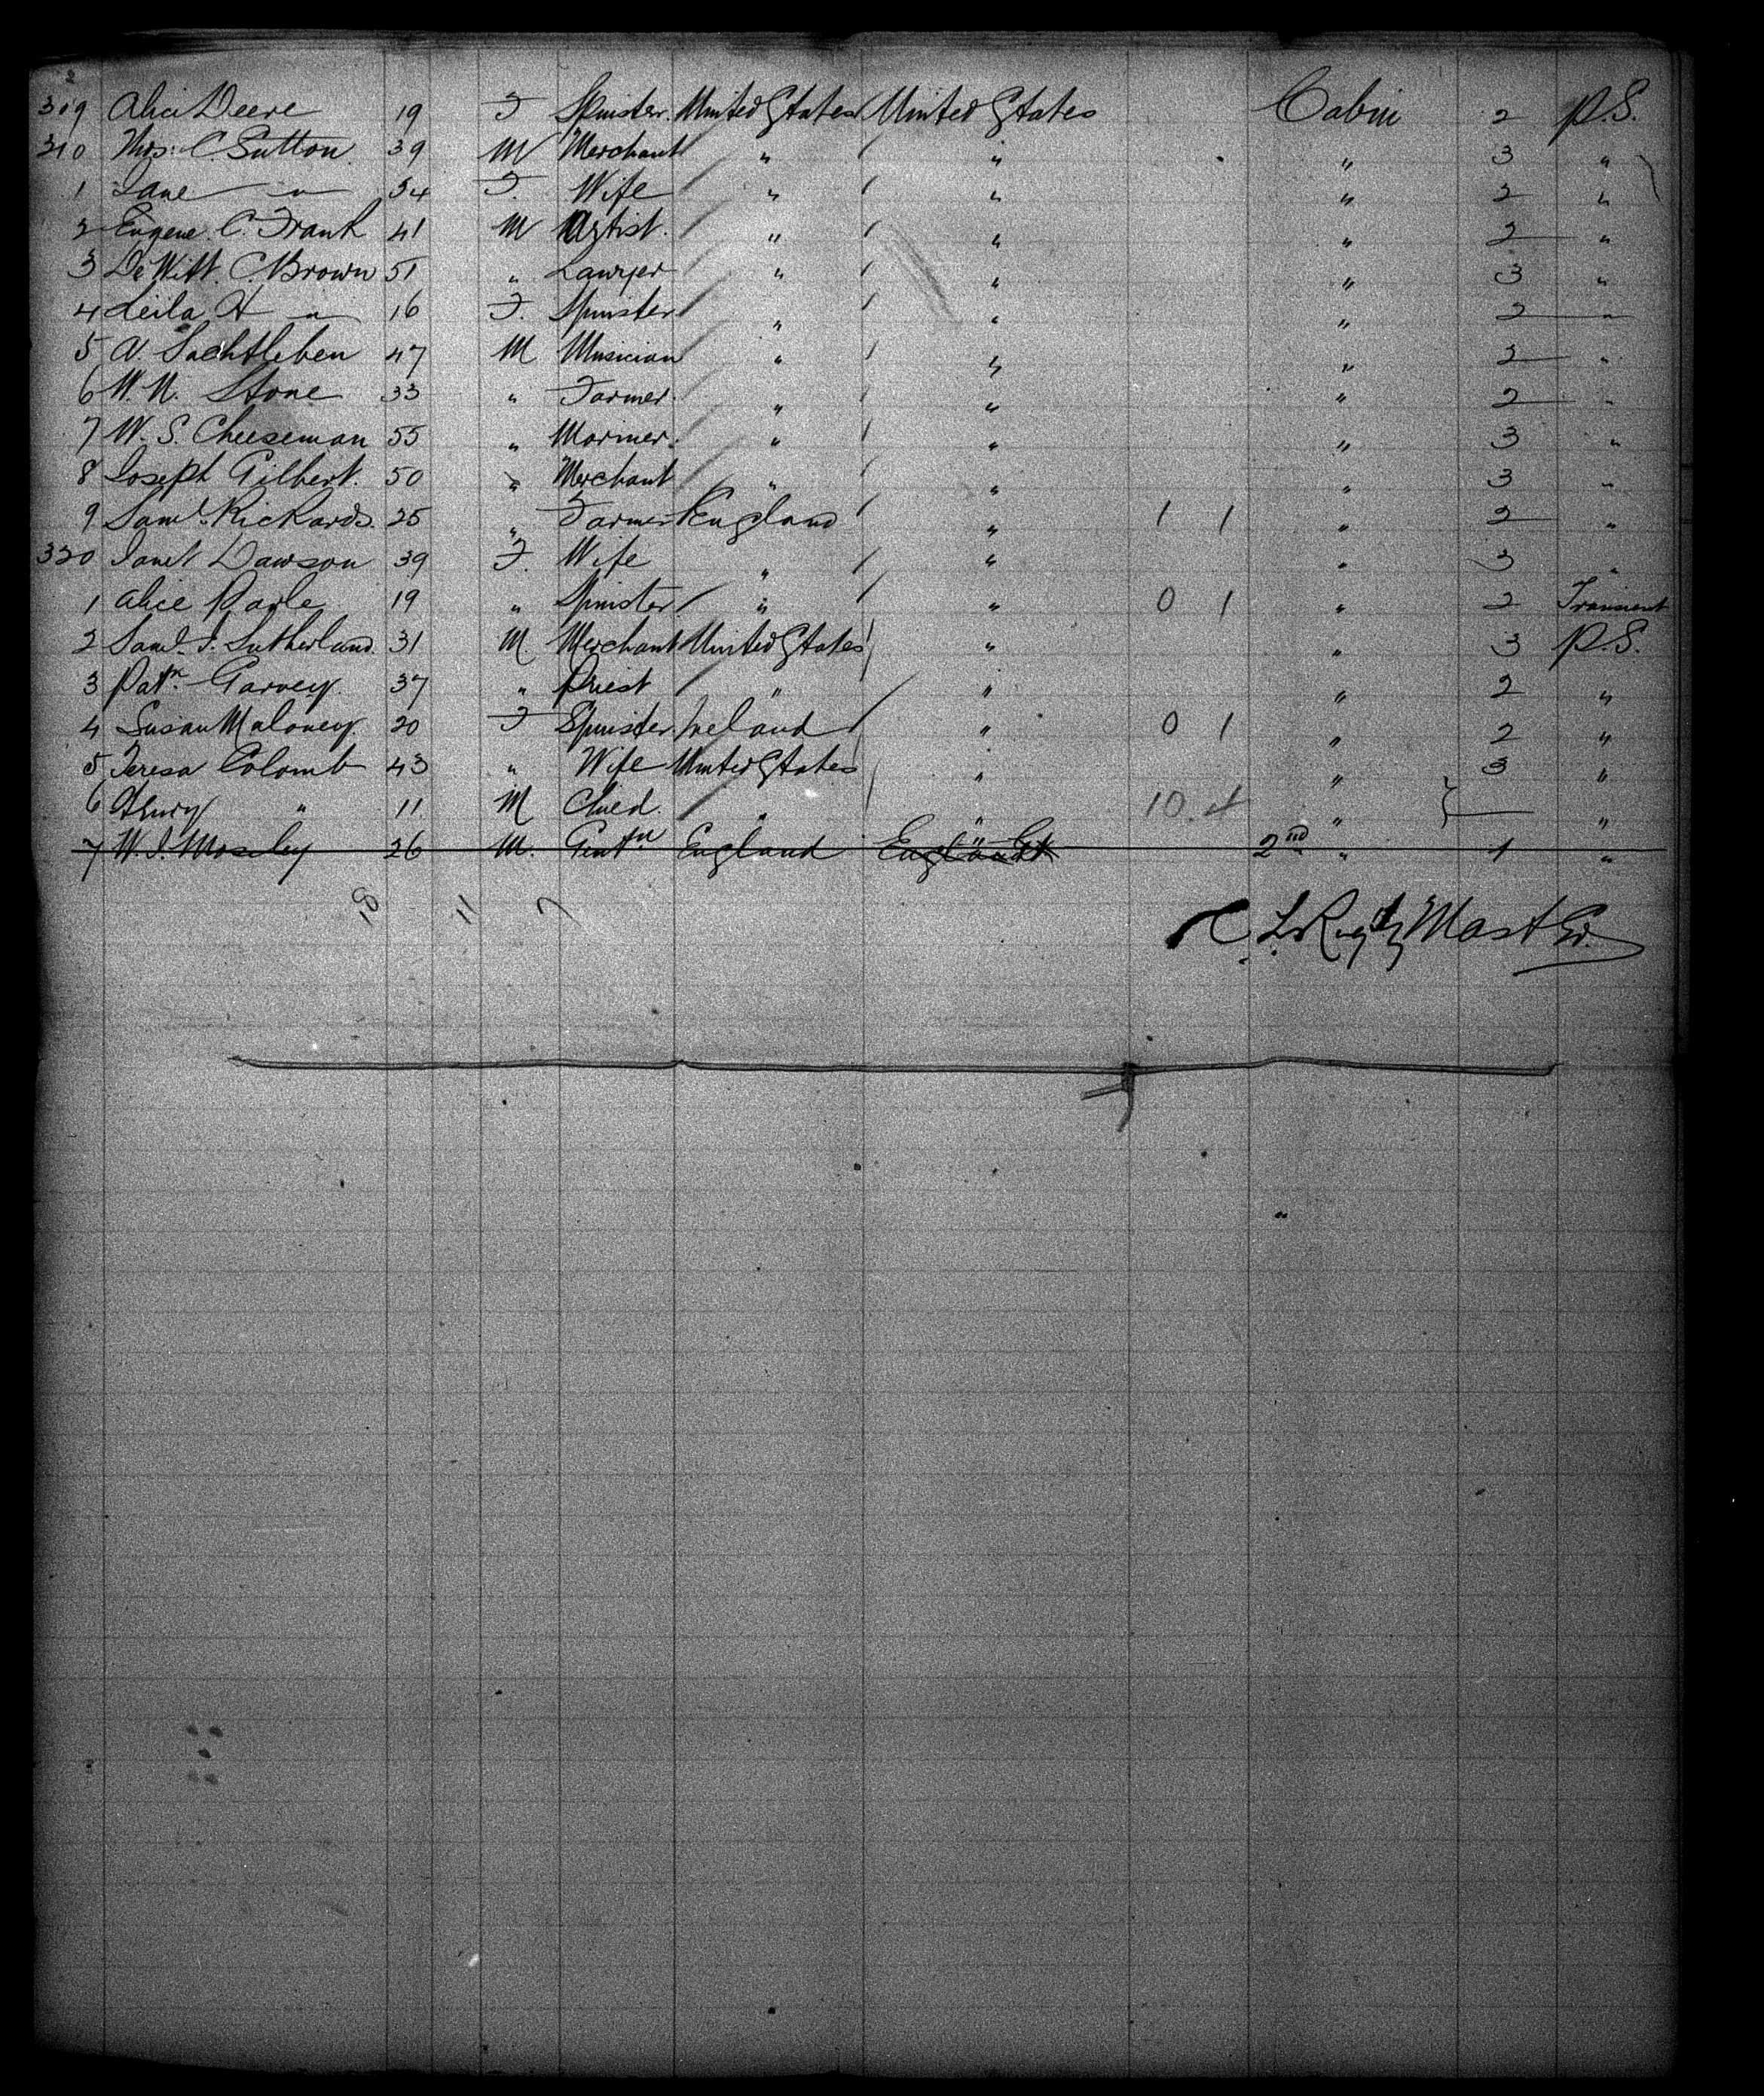 2
309 Alice Deere 19 F Spinster United States United States Cabin 2 P.S.
310 C. Sutton 39 M Merchant " " " 3 "
1 Jane " 34 F. Wife " " " 2 "
2 Eugene C. Frank 41 M Artist " " " 2 "
3 DeWitt C. Brown 51 " Lawyer " " " 3 "
4 Leila H " 16 F. Spinster " " " 2 "
5 A. Sachtleben 47 M Musician " " " 2 "
6 W. N. Stone 33 " Farmer " " " 2 "
7 W. S. Cheeseman 55 " Mariner " " " 3 "
8 Joseph Gilbert. 50 " Merchant " " " 3 "
9 Saml. Rickards 25 " Farmer England " 1 1 " 2 "
320 Janet Dawson 39 F. Wife " " " 3 "
1 Alice 19 " Spinster " " 0 1 " 2 Transient
2 Saml. J. Sutherland 31 M Merchant United States " " 3 P.S.
3 Patk. Garvey. 37 " Priest " " " 2 "
4 Susan Maloney. 20 F Spinster Ireland " 0 1 " 2 "
5 Teresa Colomb 43 " Wife United States " " 3 "
6 Henry " 11 M Child. " " 10. " "
7 W. J. Moseley 26 M. Gentn England England 2nd " 1 "
18 11 7